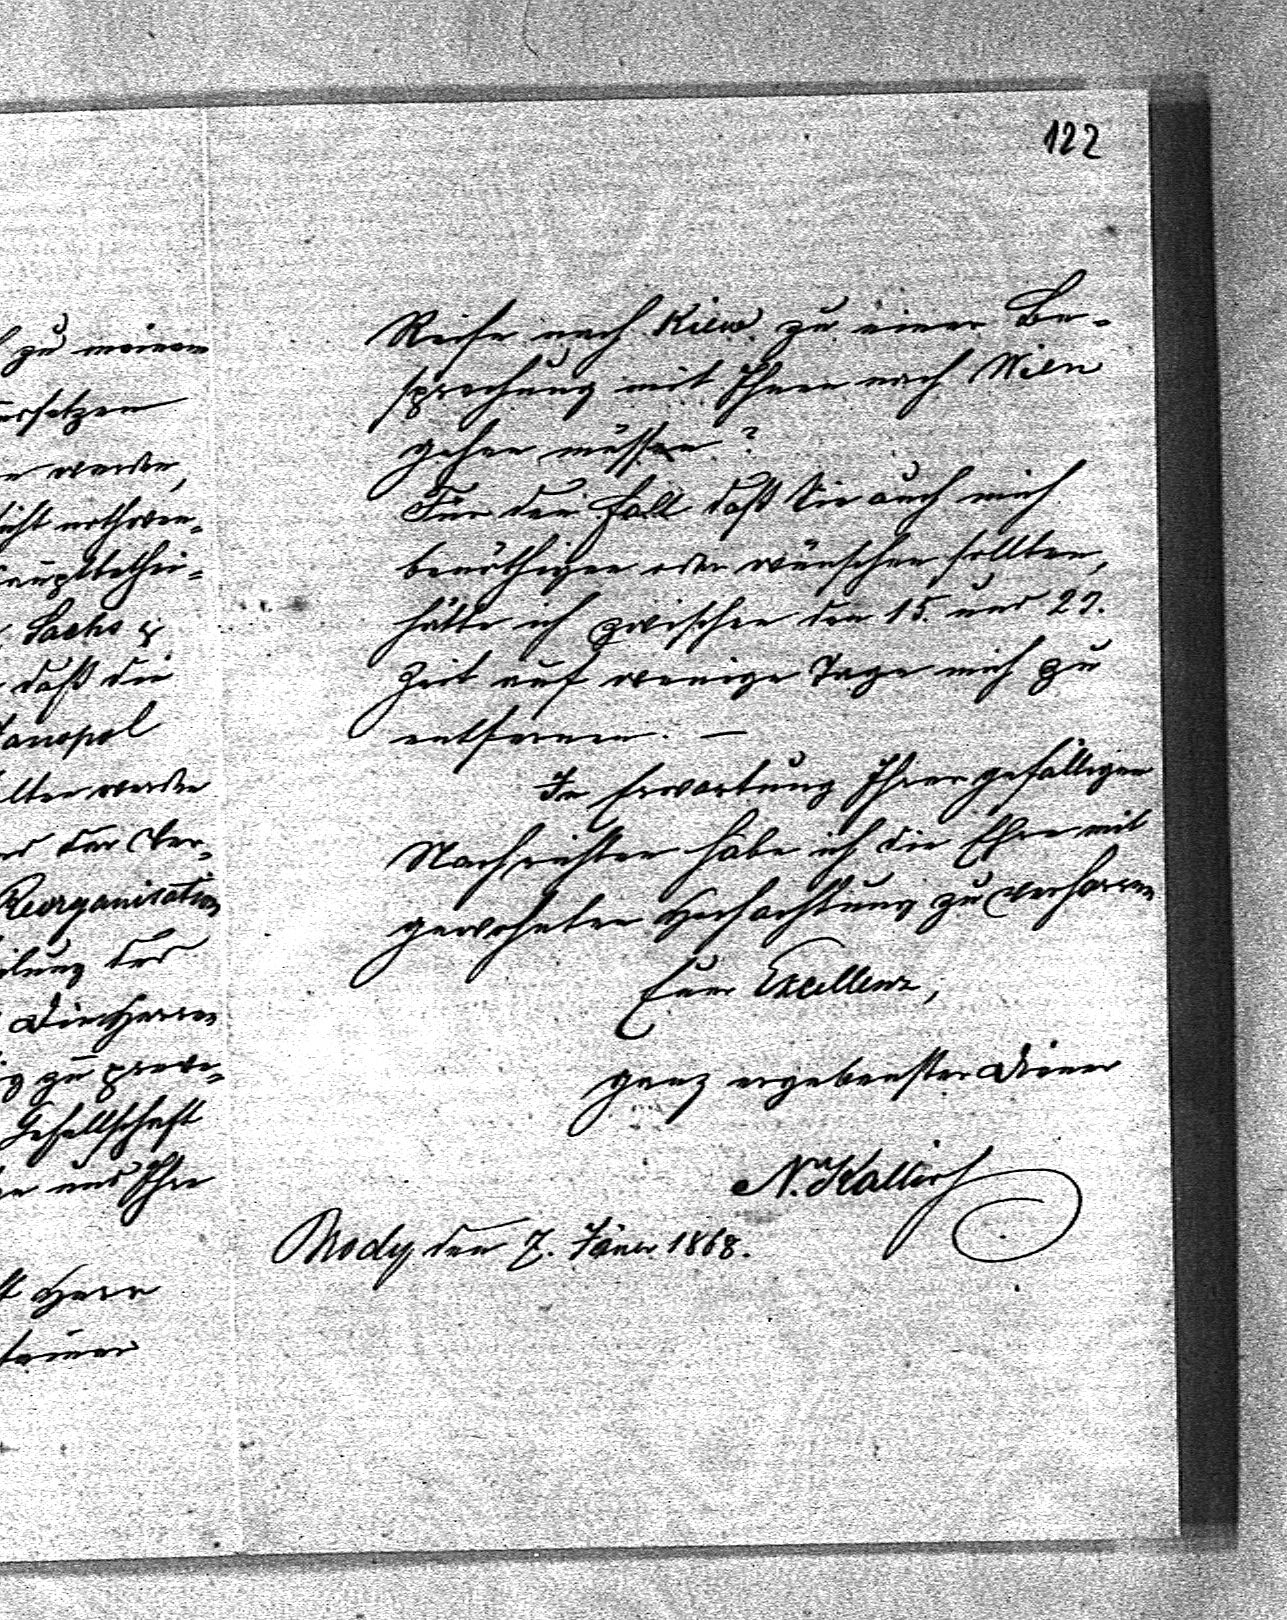 122
zu meinem
ersetzen
werden,
nicht nothwen-
Hauptbethei-
Sachs &
daß die
Tarnopol
werden
der Ver-
Reorganisation
des
Die Herren
zu prove-
Gesellschaft
und Ihre
Herr
seiner
Reise nach Kiew zu einer Be-
sprechung mit Ihnen nach Wien
gehen müssen?
Für den Fall daß Sie auch mich
benöthigen oder wünschen sollten,
hätte ich zwischen den 15. und 27.
Zeit auf wenige Tage mich zu
entfernen. —
In Erwartung Ihrer gefälligen
Nachrichten habe ich die Ehre mit
gewohnter Hochachtung zu verharren
Euer Excellenz,
ganz ergebenster Diener
N. Kallir
Brody den 7. Jäner 1868.